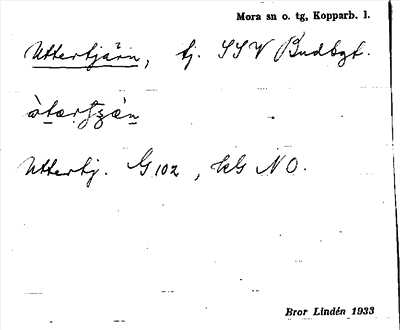 Mora sn o. tg, Kopparb. l.
Uttertjärn, tj. SSV Budbgt.
Uttertj. G 102, kG NO.
Bror Lindén 1933